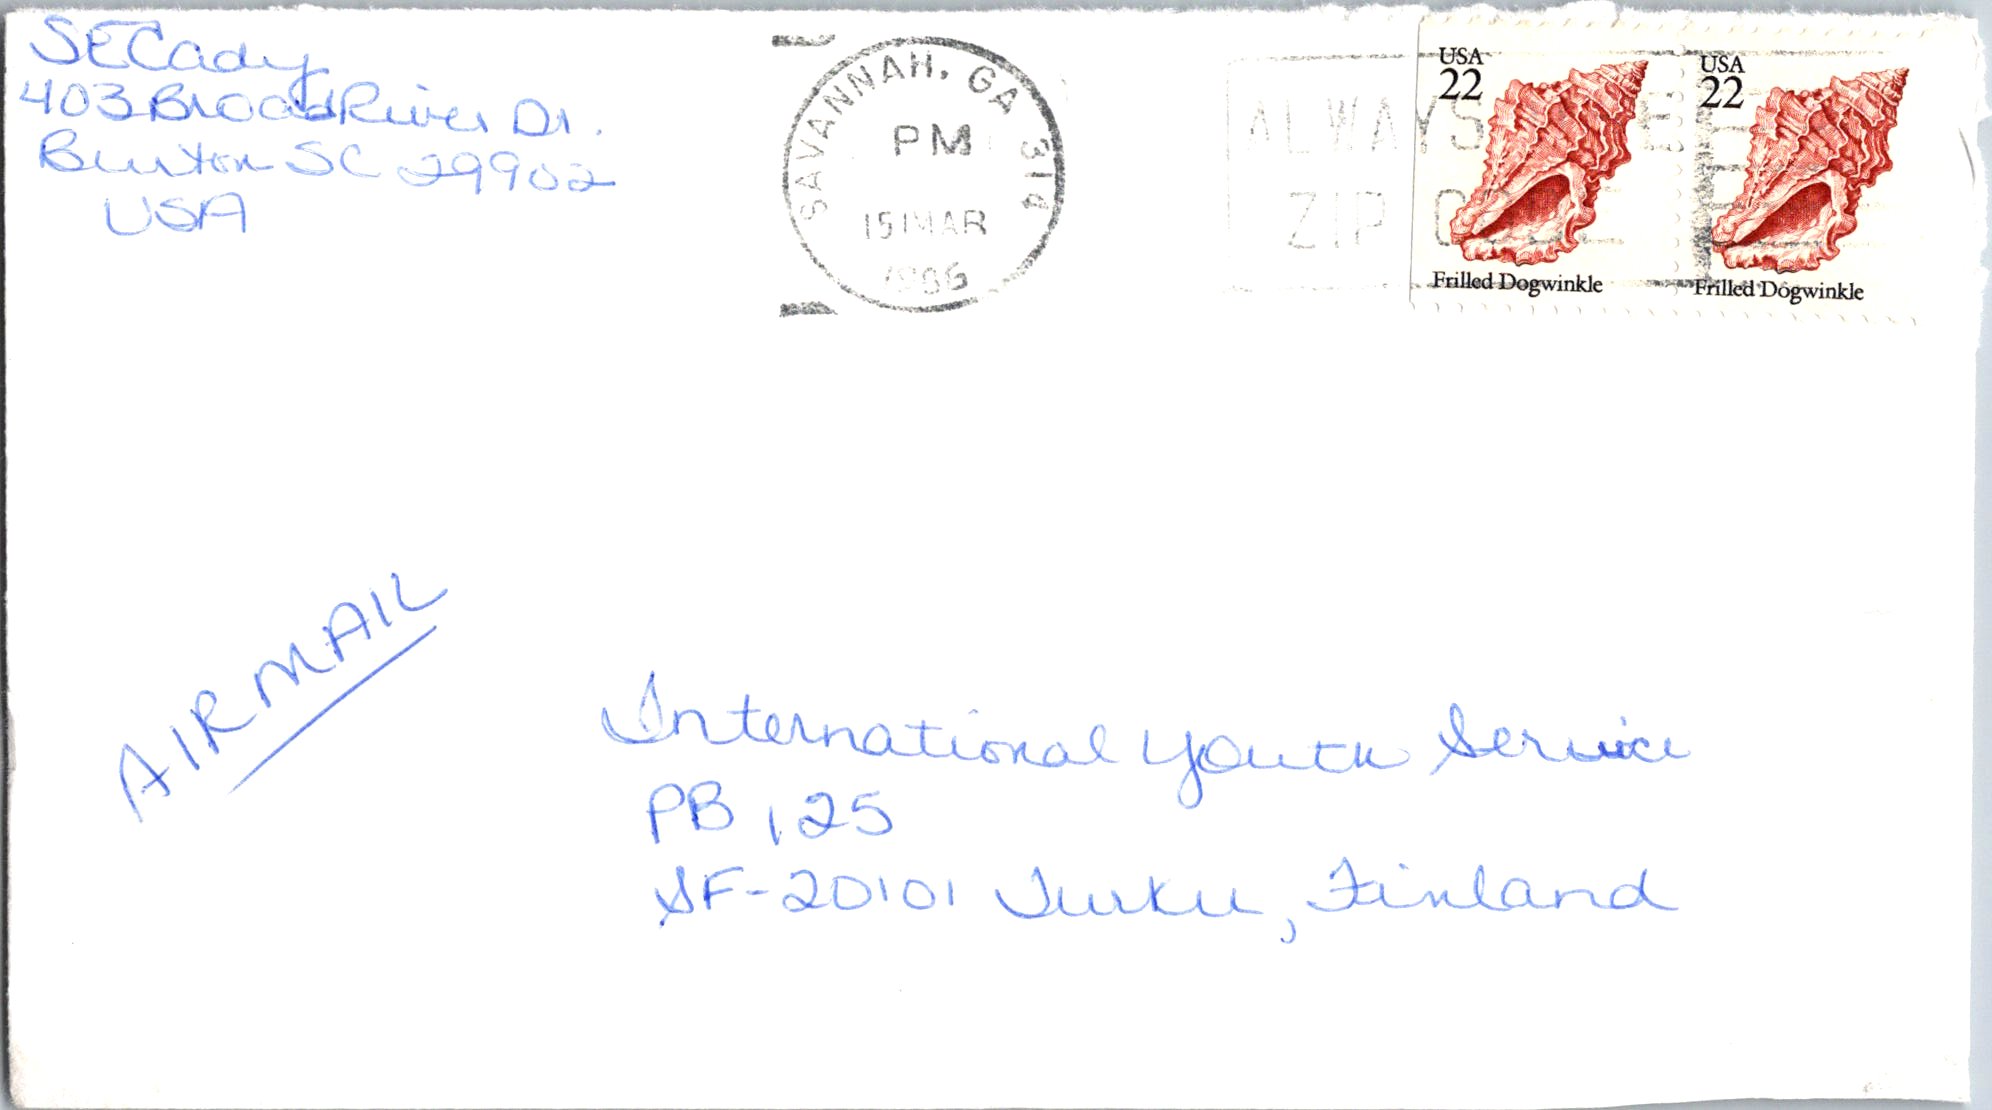 SECady
403 Broad River Dr.
Burton SC 29902
USA
SAVANNAH, GA 314
PM
15 MAR
1986
ALWAYS USE
ZIP CODE
USA
22
Frilled Dogwinkle
USA
22
Frilled Dogwinkle
AIRMAIL
International Youth Service
PB 125
SF-20101 Turku, Finland